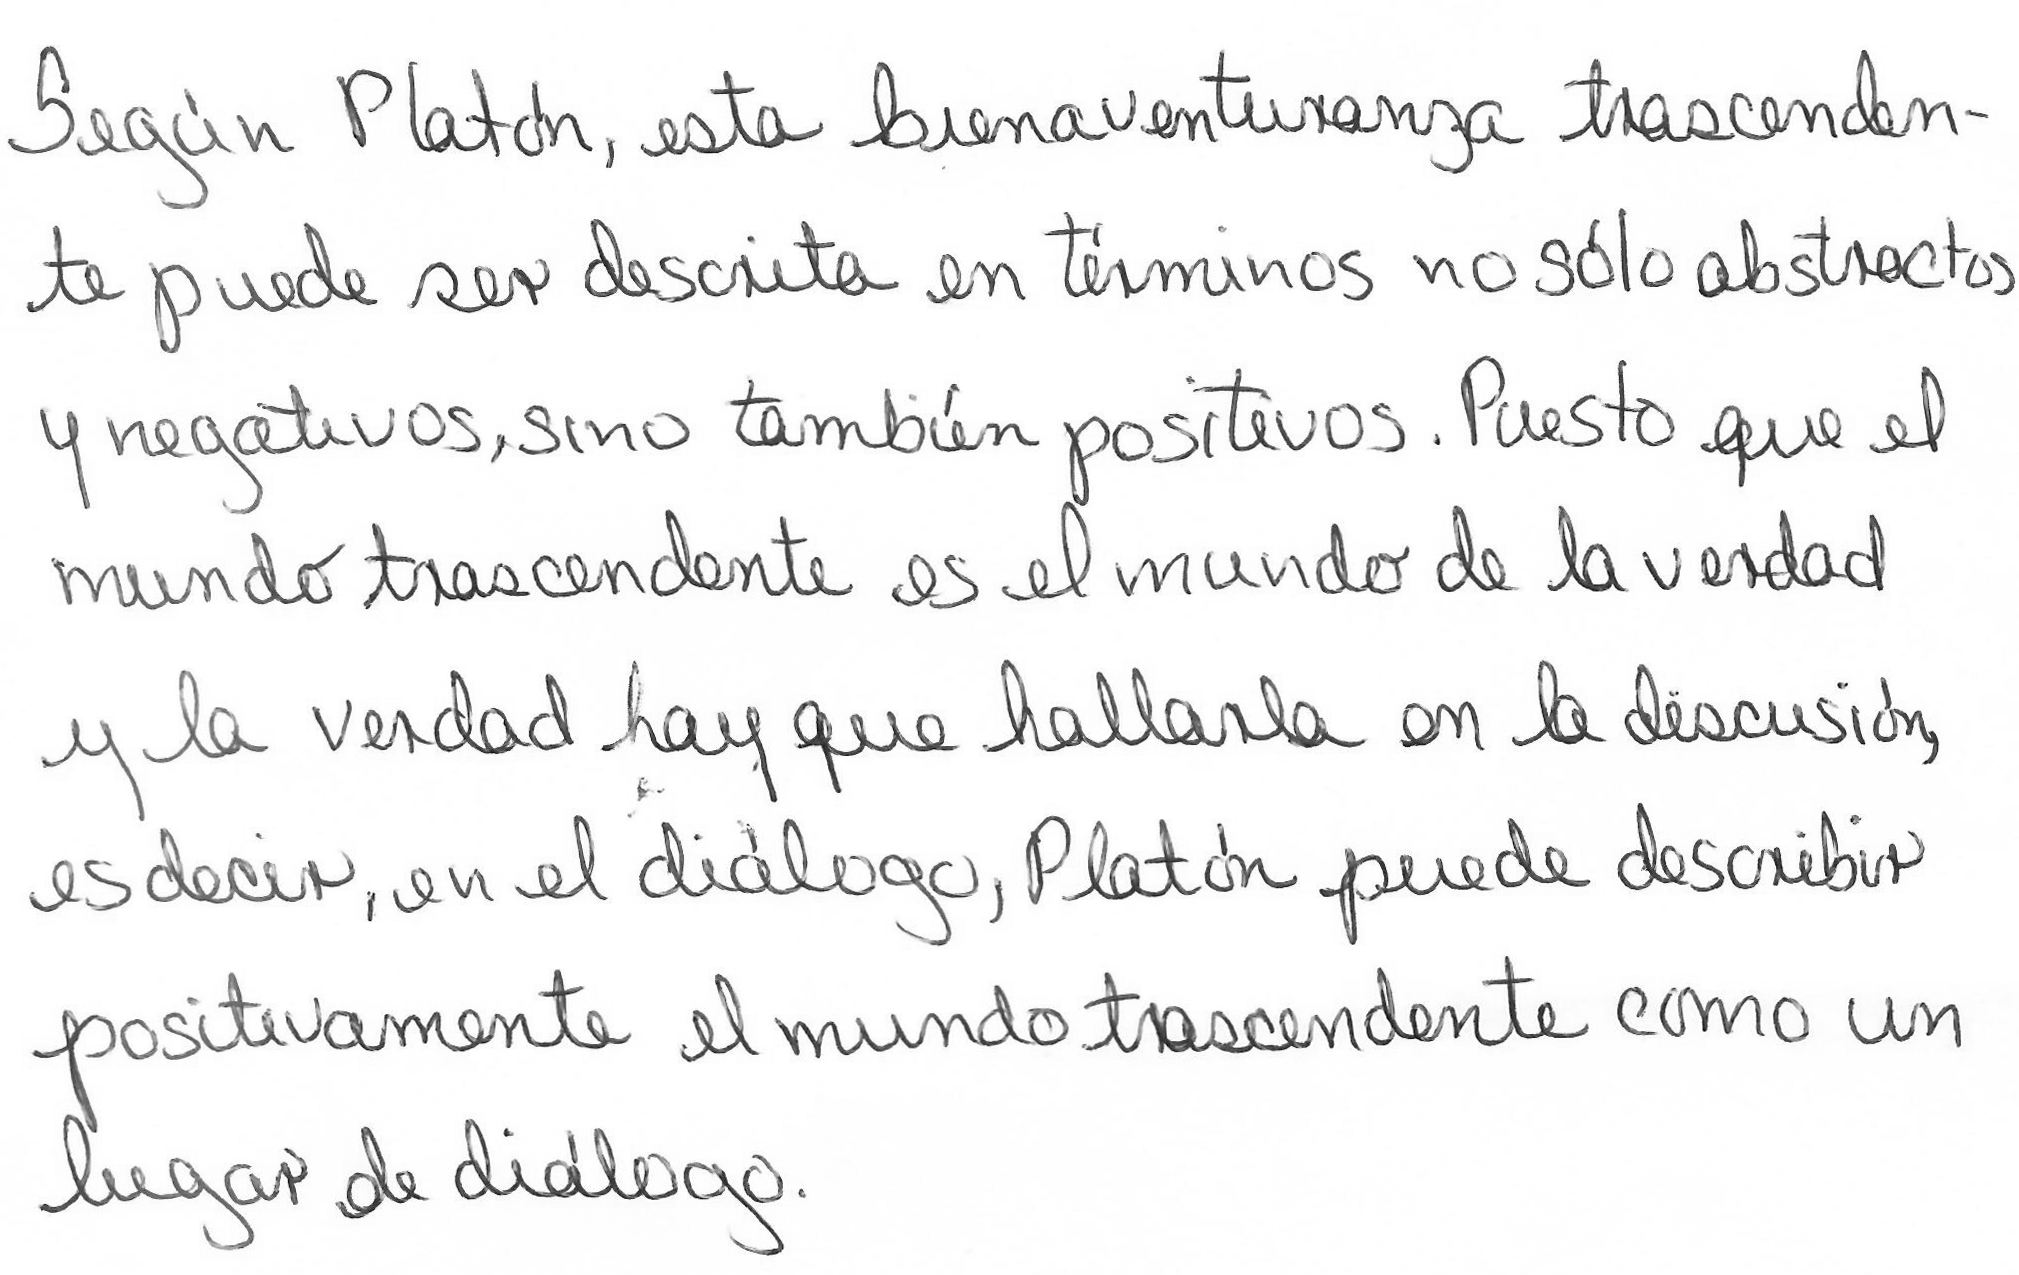 Según Platón, esta buenaventuranza trascenden-
te puede ser descrita en términos no sólo abstractos
y negativos, sino también positivos. Puesto que el
mundo trascendente es el mundo de la verdad
y la verdad hay que hallarla en la discusión,
es decir, en el diálogo, Platón puede describir
positivamente el mundo trascendente como un
lugar de diálogo.